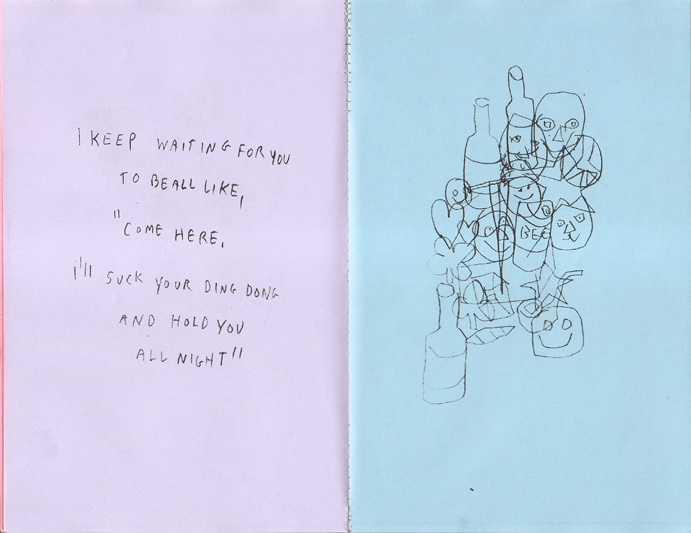 I KEEP WAITING FOR YOU
TO BE ALL LIKE,
"COME HERE,
i'll SUCK YOUR DING DONG
AND HOLD YOU
ALL NIGHT"
BEE